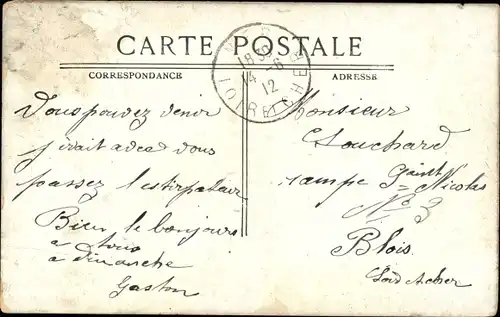 CARTE POSTALE
CORRESPONDANCE
ADRESSE
18 30
14 -6
12
LOIR-ET-CHER
Vous pouvez venir
j'irait avec vous
passez l'extirpateur
Bien le bonjours
a tous
a dimanche
Gaston
Monsieur
Touchard
rampe Saint
Nicolas
No 3
Blois
Loir et cher